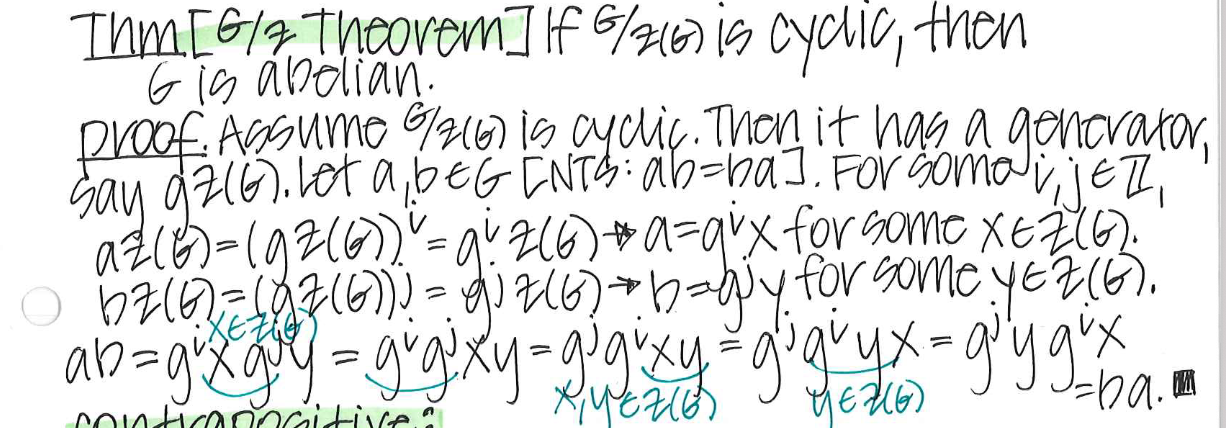 Thm [G/Z Theorem] If G/Z(G) is cyclic, then
G is abelian.
proof. Assume G/Z(G) is cyclic. Then it has a generator,
say gZ(G). Let a,b∈G [NTS: ab=ba]. For some i,j∈ℤ,
aZ(G)=(gZ(G))ⁱ=gⁱZ(G)→a=gⁱx for some x∈Z(G).
bZ(G)=(gZ(G))ʲ=gʲZ(G)→b=gʲy for some y∈Z(G).
x∈Z(G)
ab=gⁱxgʲy=gⁱgʲxy=gʲgⁱxy=gʲgⁱyx=gʲygⁱx
=ba. ∎
x,y∈Z(G) y∈Z(G)
contrapositive: